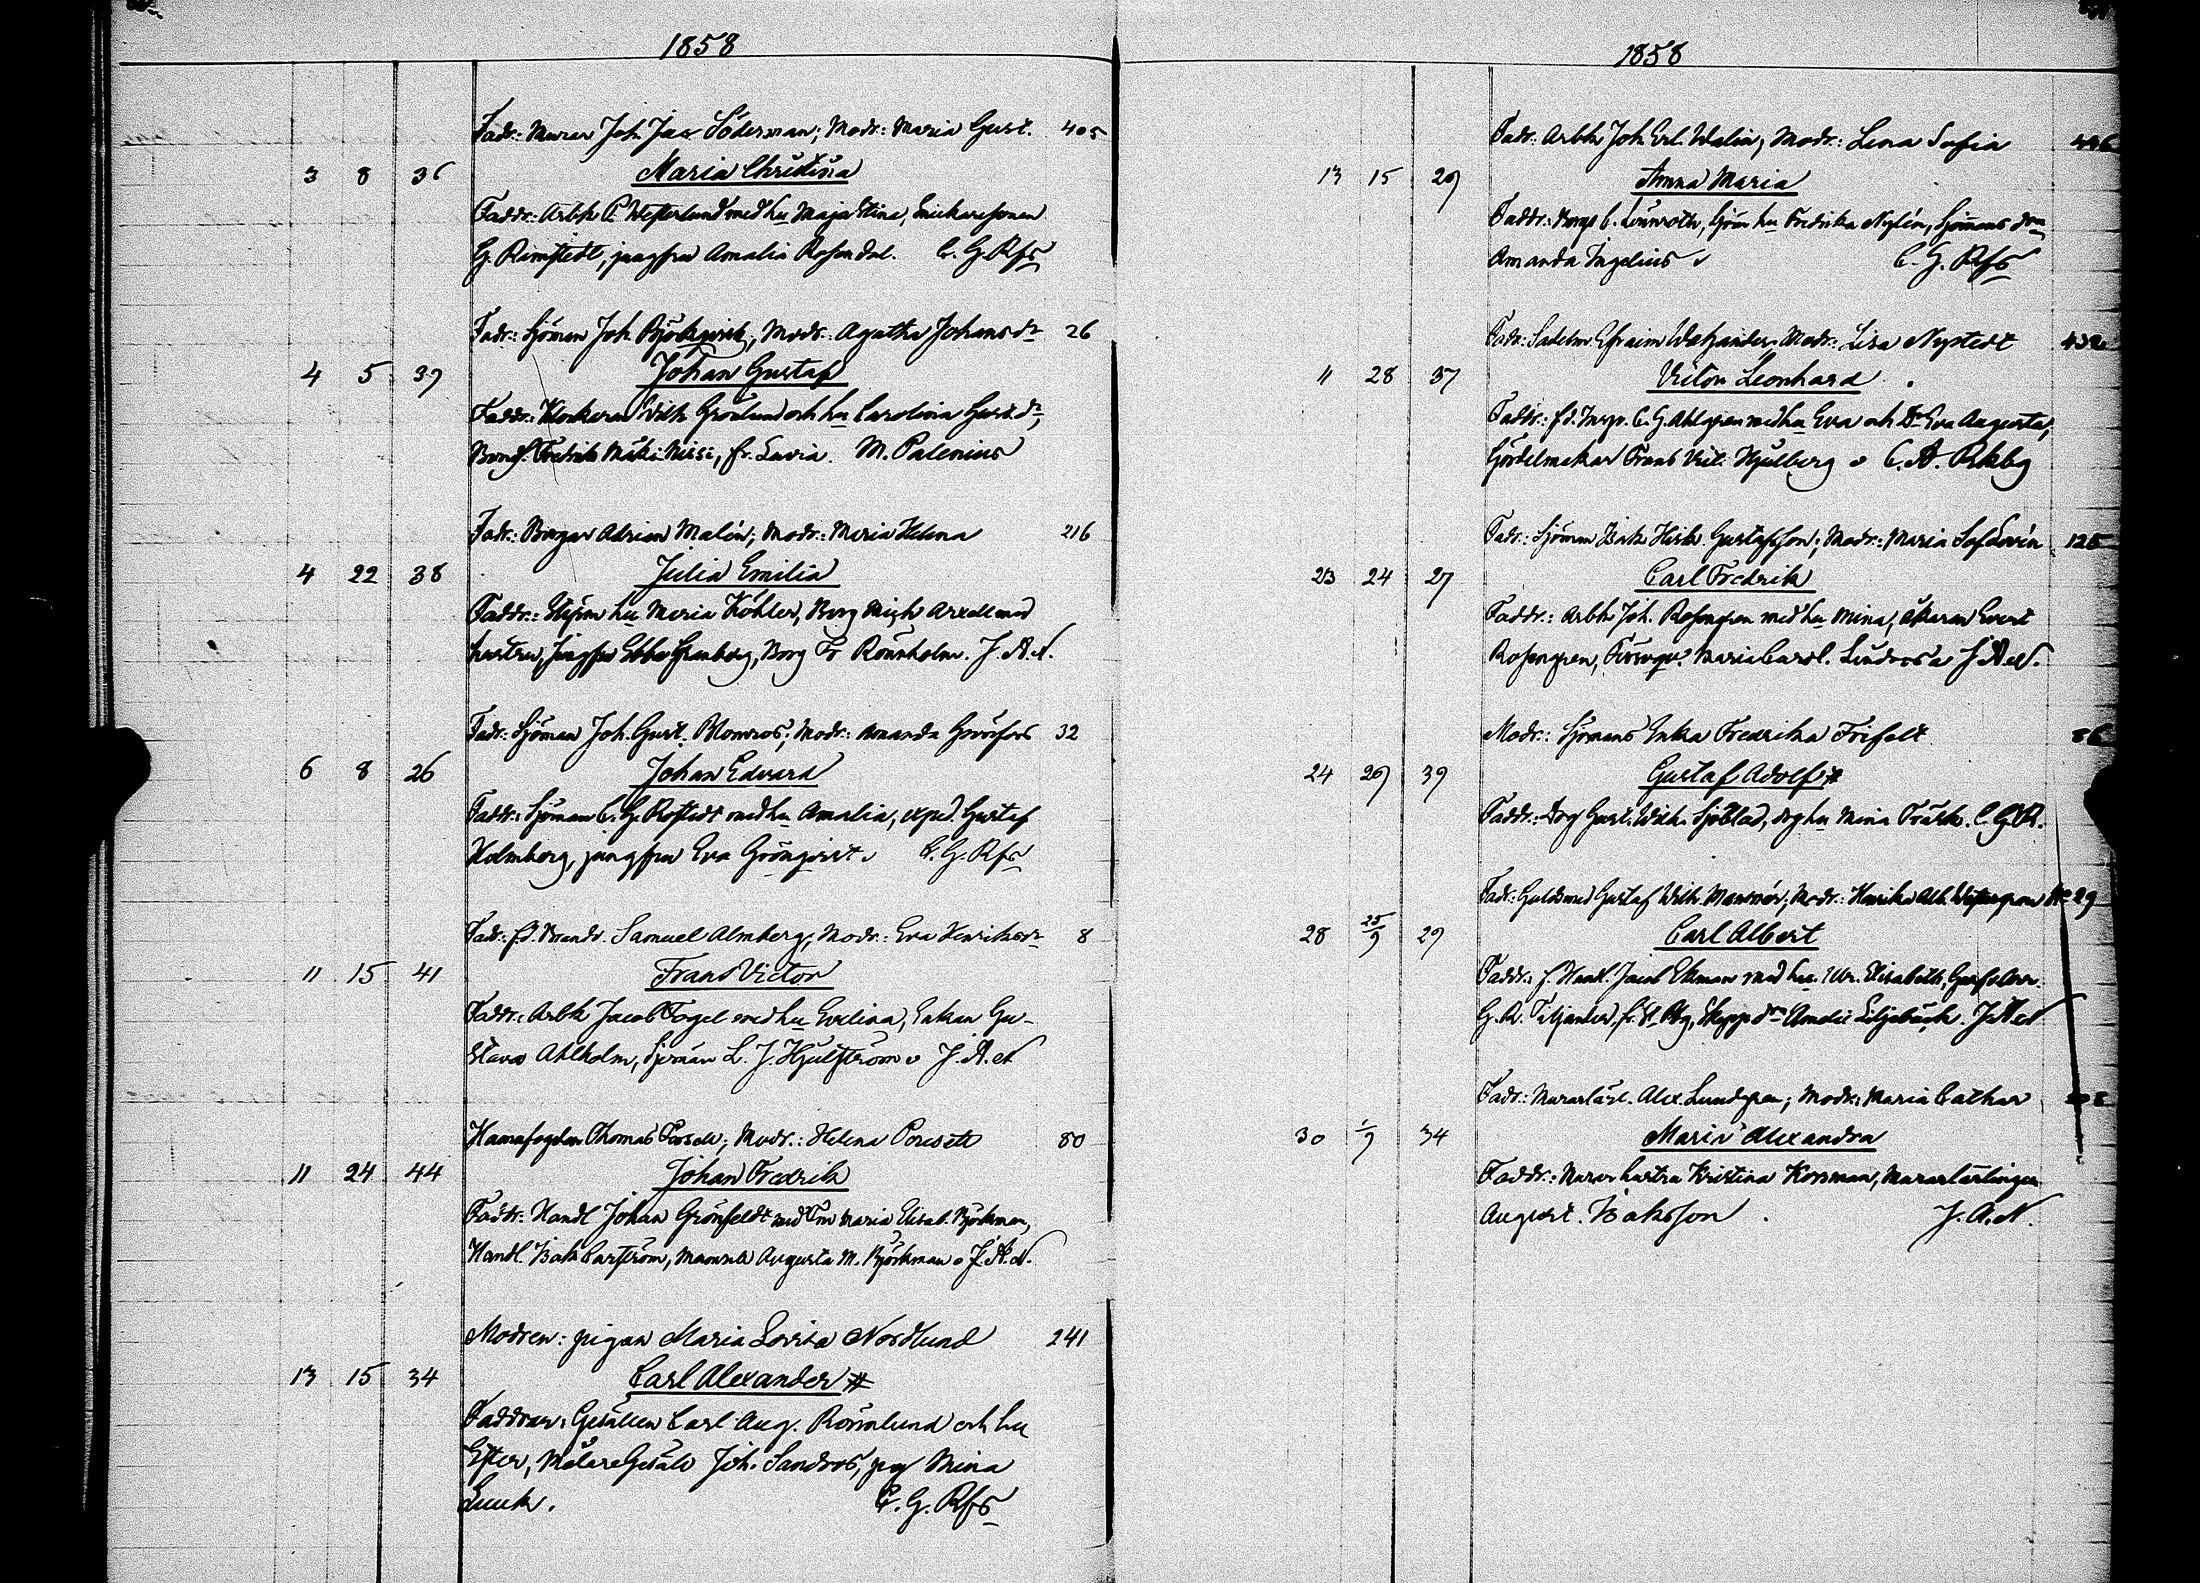 1858
Fadr: Murar Joh. Jac Söderman; Modr: Maria Gust. 405
3 8 36 Maria Christina
Faddr: Arbk P. Westerlund med hu Maja Stina, Snickaresonen
G. Rimstedt, jungfru Amalia Rosendal. C. G. Rfs
Fadr: Sjöman Joh. Björkqvist, Modr: Agatha Johansdr 26
4 5 39 Johan Gustaf
Faddr: Klockaren Wilh Grönlund och hu Carolina Gust. dr,
Bonds. Fredrik Mäki Nissi, fr. Lavia. M. Palenius
Fadr: Borgar Adrian Malén; Modr: Maria Helena 216
4 22 38 Julia Emilia
Faddr: Styrm hu Maria Köhler, Borg Mich Axell med
hustru, Jungfru Ebba Granberg, Borg Fr Rönnholm. J. A. N.
Fadr: Sjöman Joh. Gust. Blomros; Modr: Amanda Göösfors 32
6 8 26 Johan Edvard
Faddr: Sjöman C. G. Rostedt med hu Amalia, exped. Gustaf
Holmberg, jungfru Eva Grönqvist. C. G. Rfs
Fadr: fd. Brandv. Samuel Almberg, Modr: Eva Henriksdr 8
11 15 41 Frans Victor
Faddr: Arbk Jacob Fogel med hu Evelina, Enkan Gu-
stava Ahlholm, Sjöman L. J. Hjulström J. A. N
Hamnfogden Thomas Porsell; Modr: Helena Porsell 80
11 24 44 Johan Fredrik
Faddr: Handl Johan Grönfeldt med Fru Maria Elisab. Björkman,
Handl. Isak Carström, Mamsell Augusta M. Björkman J. A. N.
Modren: pigan Maria Lovisa Nordlund 241
13 15 34 Carl Alexander #
Faddrar: Gesällen Carl Aug. Rönnlund och hu
Ester, Målare Gesäll Joh. Sandros, pig Mina
Luuk. C. G. Rfs
1858
Fadr: Arbk Joh. Erl. Walin, Modr: Lena Sofia 446
13 15 29 Anna Maria
Faddr: C. Lönnroth, Sjöm hu Fredrika Nylén, Sjömans drn
Amanda Ingelius C. G. Rfs
Fadr: Sadelm. Efraim Modr: Lisa Nystedt 432
11 28 37 Victor Leonhard
Faddr: fd. Insp. C. G. Ahlgren med hu Eva och Dr Eva Augusta,
Gördelmakar Frans Vict. Hjulberg C. A. Rkbg
Fadr: Sjöman Isak Hink Gustafsson; Modr: Maria Sof Lovén 125
23 24 27 Carl Fredrik
Faddr: Arbk Joh. Rosengren med hu Mina, åkaren Evert
Rosengren, Maria Carol. Lindros J A N.
Modr: Sjömans Enka Fredrika Frifelt 86
24 29 39 Gustaf Adolf #
Faddr: Drg Gust. Wilh. Sjöblad, drg hu Mina Träsk. C. G. R.
Fadr: Guldsmed Gustaf Wilh. Modr: Henrika Alb. Westergren No 29
28 25/9 29 Carl Albert
Faddr: f. Handl. Jacob Ekman med hu Ulr. Elisabeth,
G. R. Tiljander, fr. St. Pbg, Skepp drn Amalie Liljebäck. J A N
Fadr: Murarlärl. Alex. Lundgren; Modr: Maria Cathar
30 1/9 34 Maria Alexandra
Faddr: Murar hustru Kristina Korsman, Murarlärlingen
August Isaksson. J. A. N.